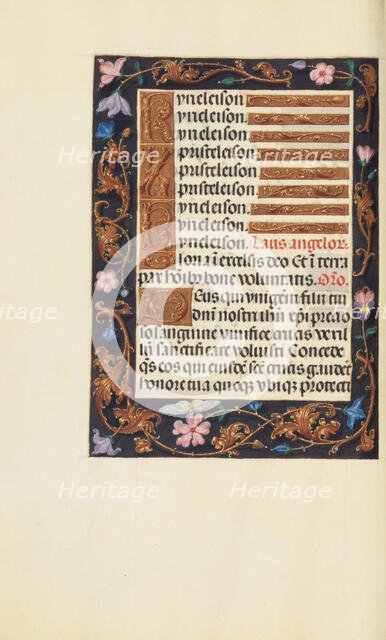 Kyrieleison.
Kyrieleison.
Kyrieleison.
Xpristeleison.
Xpristeleison.
Xpristeleison.
Kyrieleison.
Kyrieleison.
Kyrieleison. Laus angelor.
Gloria ī excelsis deo Et ī terra
pax hoībꝫ bone voluntatis. Oro.
Deus qui unigeīti filii tui
dn̄i nostri ih̄u xp̄i precio
so sanguine vivifice crucis vexi
lū sanctificare voluisti Concede
q̄s eos qui eiusdē sc̄e crucis gaudēt
honore tua quoqꝫ ubiqꝫ protecti
Heritage Heritage
Heritage Heritage
Heritage Heritage